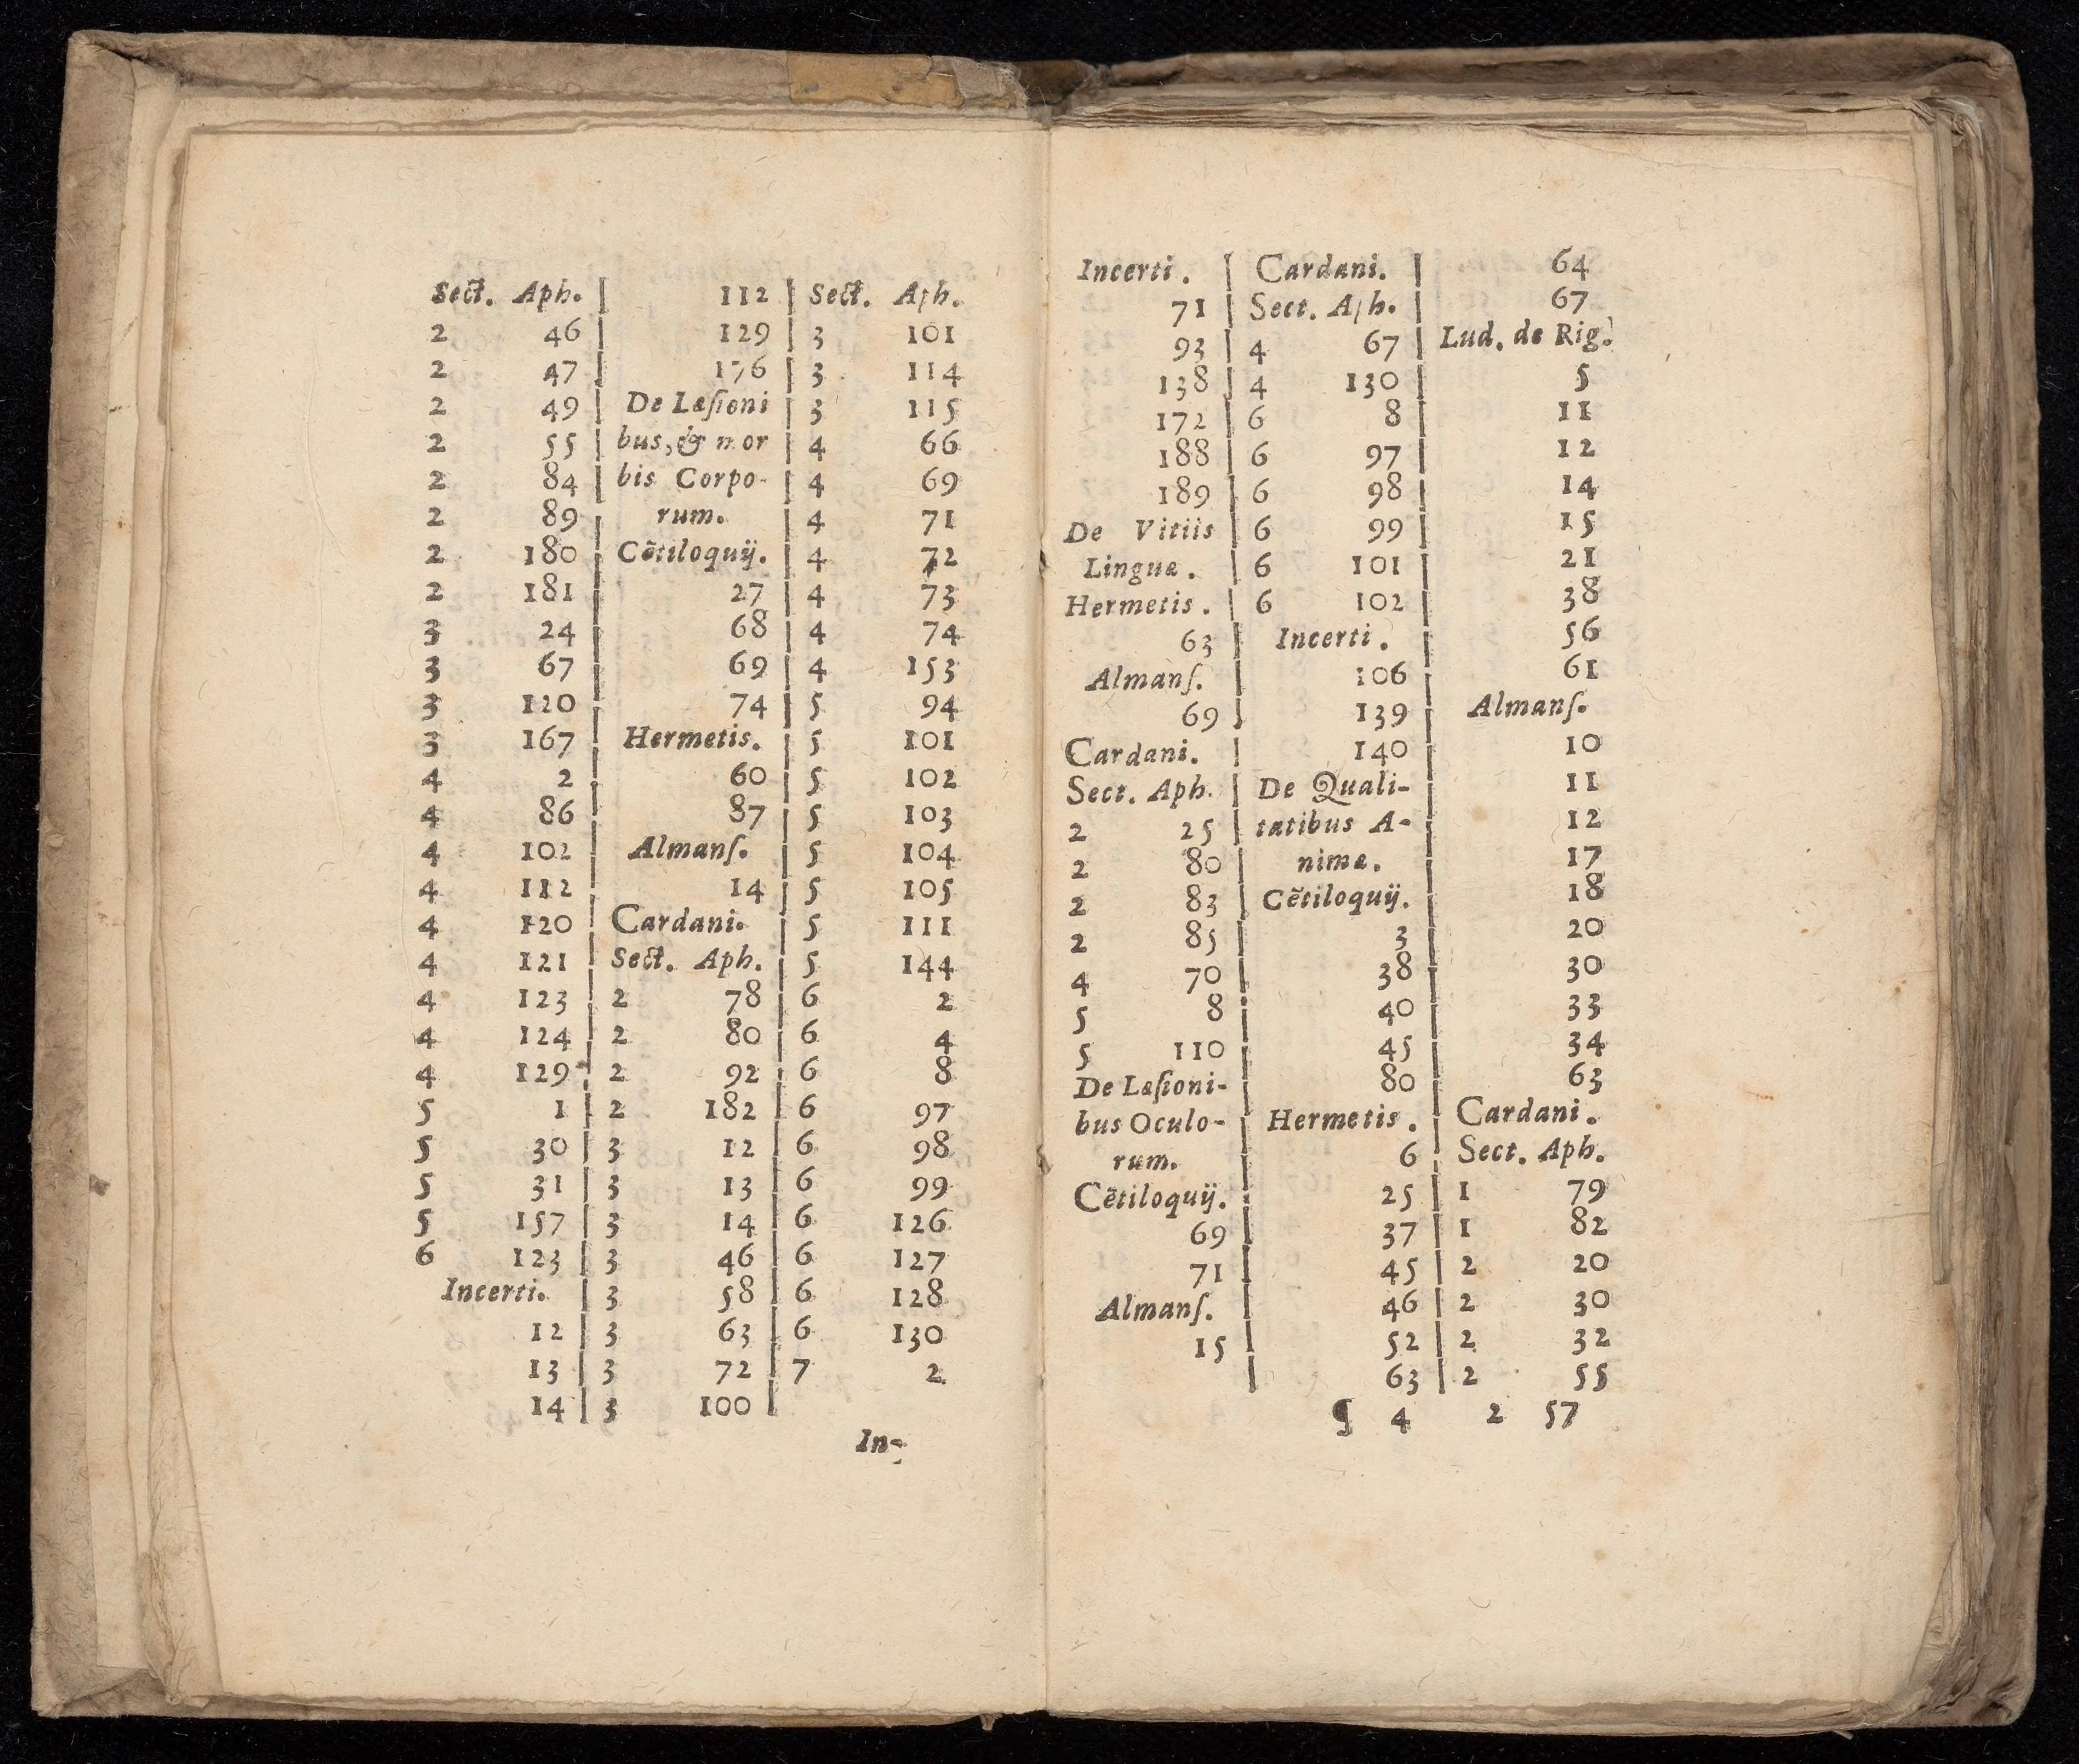 Sect. Aph.
2 46
2 47
2 49
2 55
2 84
2 89
2 180
2 181
3 24
3 67
3 120
3 167
4 2
4 86
4 102
4 112
4 120
4 121
4 123
4 124
4 129
5 1
5 30
5 31
5 157
6 123
Incerti.
12
13
14
112
129
176
De Læſioni
bus, & mor
bis Corpo-
rum.
Cẽtiloquÿ.
27
68
69
74
Hermetis.
60
87
Almanſ.
14
Cardani.
Sect. Aph.
2 78
2 80
2 92
2 182
3 12
3 13
3 14
3 46
3 58
3 63
3 72
3 100
Sect. Aph.
3 101
3 114
3 115
4 66
4 69
4 71
4 72
4 73
4 74
4 153
5 94
5 101
5 102
5 103
5 104
5 105
5 111
5 144
6 2
6 4
6 8
6 97
6 98
6 99
6 126
6 127
6 128
6 130
7 2
In-
Incerti.
71
93
138
172
188
189
De Vitiis
Linguæ.
Hermetis.
63
Almanſ.
69
Cardani.
Sect. Aph.
2 25
2 80
2 83
2 85
4 70
5 8
5 110
De Læſioni-
bus Oculo-
rum.
Cẽtiloquÿ.
69
71
Almanſ.
15
Cardani.
Sect. Aph.
4 67
4 130
6 8
6 97
6 98
6 99
6 101
6 102
Incerti.
106
139
140
De Quali-
tatibus A-
nimæ.
Cẽtiloquÿ.
3
38
40
45
80
Hermetis.
6
25
37
45
46
52
63
64
67
Lud. de Rig.
5
11
12
14
15
21
38
56
61
Almanſ.
10
11
12
17
18
20
30
33
34
63
Cardani.
Sect. Aph.
1 79
1 82
2 20
2 30
2 32
2 55
¶ 4 2 57